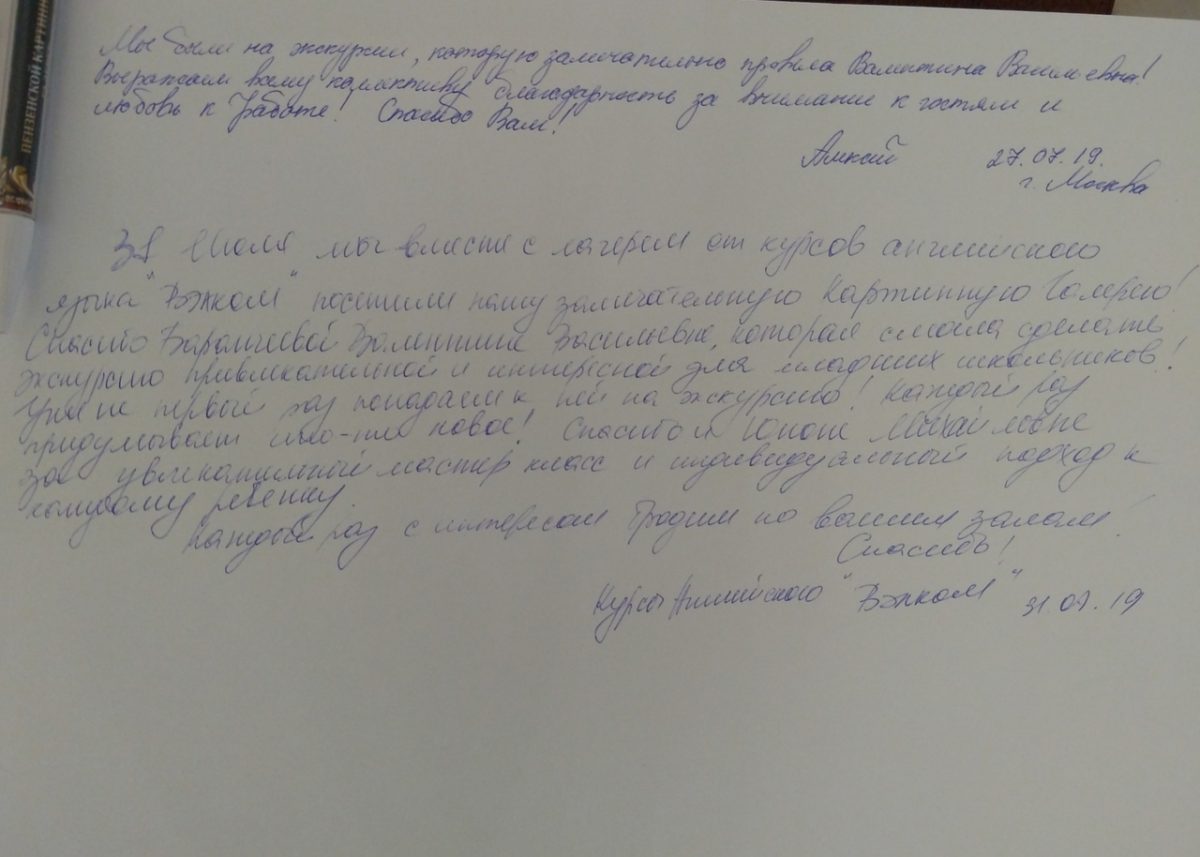 ПЕНЗЕНСКОЙ КАРТИННО
Мы были на экскурсии, которую замечательно провела Валентина Васильевна!
Выражаем всему коллективу благодарность за внимание к гостям и
любовь к работе! Спасибо Вам!
Алексей 27.07.19.
г. Москва
31 Июля мы вместе с лагерем от курсов английского
языка "Вэлком" посетили нашу замечательную Картинную Галерею!
Спасибо Валентине Васильевне, которая смогла сделать
экскурсию привлекательной и интересной для младших школьников!
Уже не первый раз попадаем к ней на экскурсию! Каждый раз
придумывает что-то новое! Спасибо и Михайловне
за увлекательный мастер класс и индивидуальный подход к
каждому ребенку.
Каждый раз с интересом бродим по вашим залам!
Спасибо!
Курсы Английского "Вэлком" 31.07.19